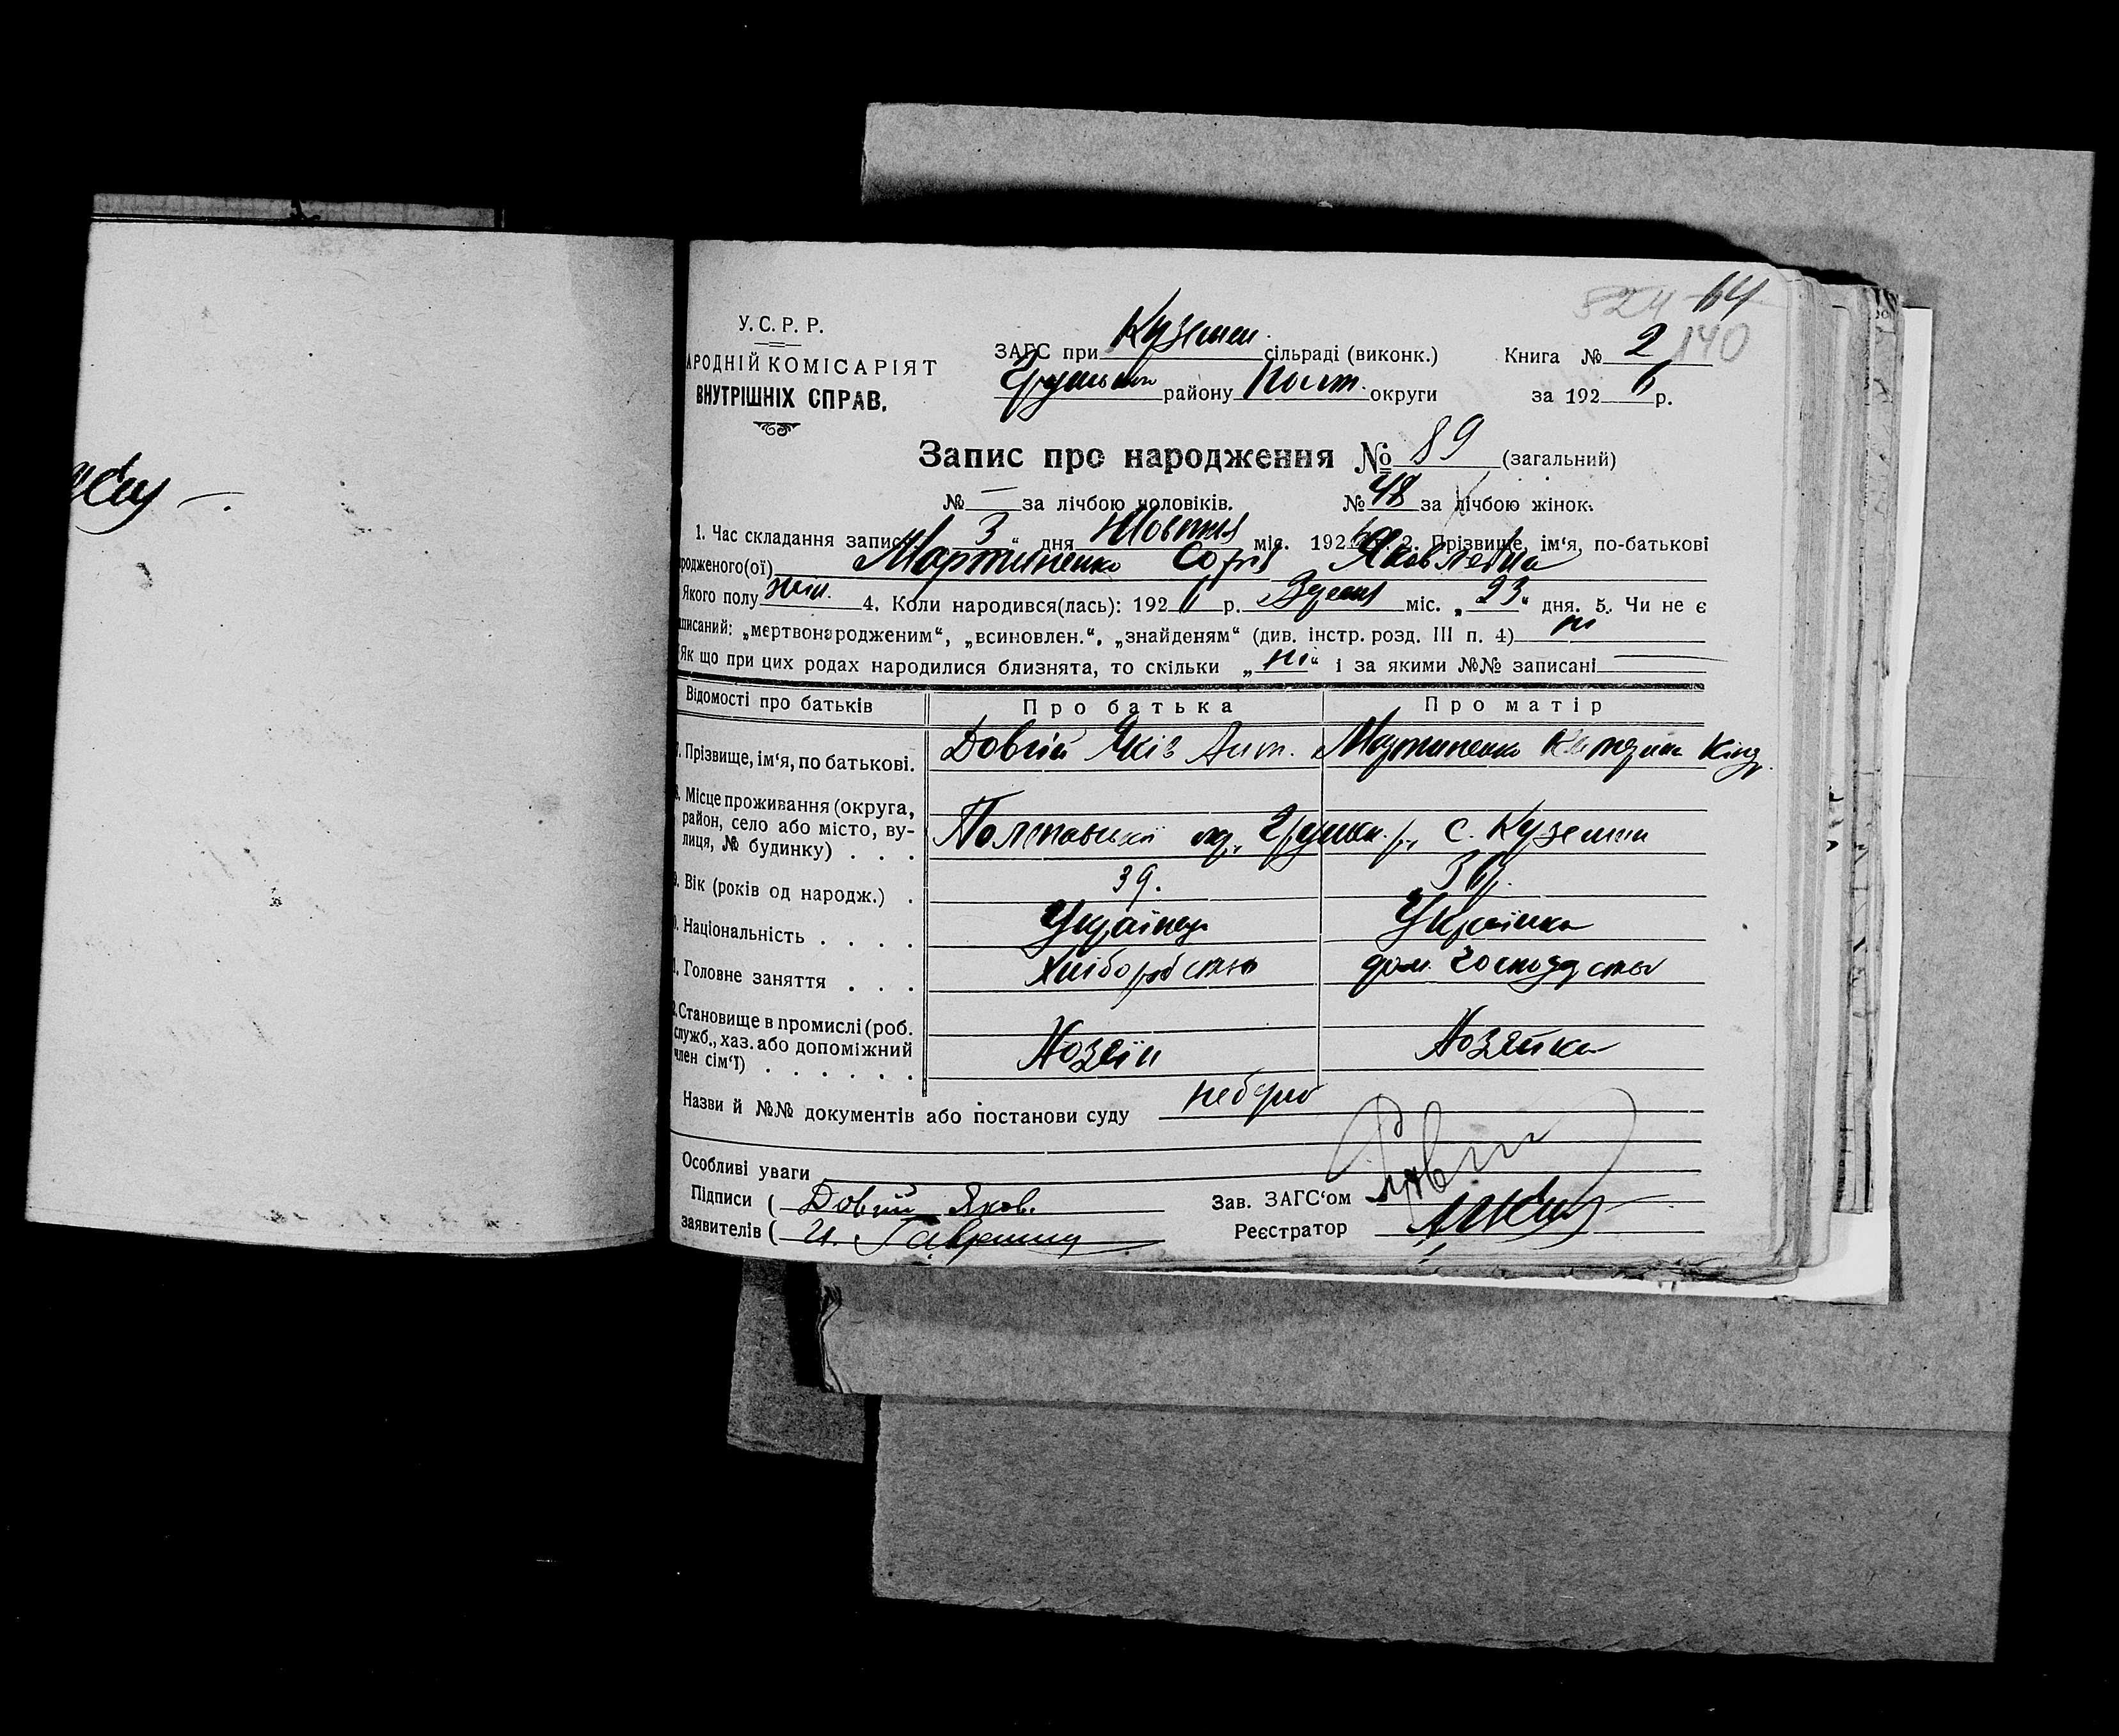 У.С.Р.Р.
АРОДНІЙ КОМІСАРІЯТ
ВНУТРІШНІХ СПРАВ.
524 64
140
ЗАГС при Кузем. сільраді (виконк.) Книга № 2
району Полт. округи за 1926 р.
Запис про народження № 89 (загальний)
№ — за лічбою чоловіків. № 48 за лічбою жінок.
1. Час складання запису 3 “ дня Жовтня міс. 1926 р. 2. Прізвище, ім‘я, по-батькові
родженого(ої) Мартиненко Софія Яковлевна
Якого полу жін. 4. Коли народився(лась): 1926 р. Вересня міс. „ 23 “ дня. 5. Чи не є
писаний: „мертвонародженим“, „всиновлен.“, „знайденям“ (див. інстр. розд. III п. 4) ні
Як що при цих родах народилися близнята, то скільки „ ні “ і за якими №№ записані
Відомості про батьків Про батька Про матір
Прізвище, ім‘я, по батькові. Довгий Яків Ант. Мартиненко Катерина Кінд.
Місце проживання (округа,
район, село або місто, ву-
лиця, № будинку) . . . Полтавської ок., Грунск. р., с. Куземин
Вік (років од народж.) . 39. 36 р.
Національність . . . . Українець Українка
Головне заняття . . . Хліборобство дом. господарство
Становище в промислі (роб.
служб., хаз. або допоміжний
член сім‘ї) . . . . . . Хозяїн Хозяйка
Назви й №№ документів або постанови суду небуло
Особливі уваги
Підписи ( Довгий Яков.
заявителів ( И. Гаврыш
Зав. ЗАГС‘ом
Реєстратор